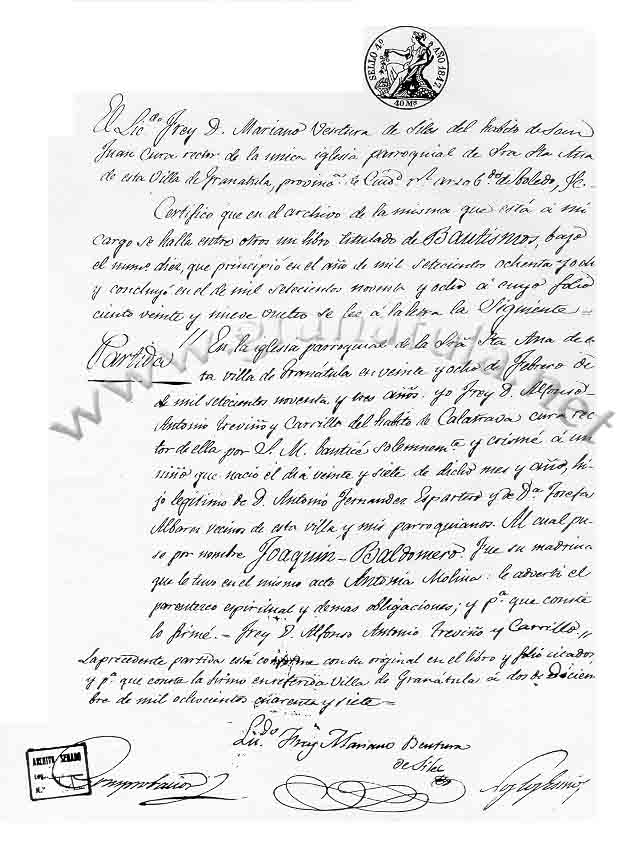 SELLO 4º AÑO 1847
40 Ms
El Licdo Frey D. Mariano Ventura de Siles del habito de San
Juan Cura rector de la unica iglesia parroquial de Sra Sta Ana
de esta Villa de Granatula, provina de Ciudd Rl arzobdo de Toledo, &c.
Certifico que en el archivo de la misma que está á mi
cargo se halla entre otros un libro titulado de Bautismos, bajo
el numo diez, que principió en el año de mil setecientos ochenta y och
y concluyó en el de mil setecientos noventa y ocho á cuyo folio
ciento veinte y nueve vuelto se lee á la letra la Siguiente
Partida // En la iglesia parroquial de la Sra Sta Ana de e
ta villa de Granátula en veinte y ocho de Febrero de
mil setecientos noventa y tres años: yo Frey D. Alfonso
Antonio Treviño y Carrillo del habito de Calatrava cura rec-
tor de ella por S. M. bauticé solemnemte y crismé á un
niño que nació el dia veinte y siete de dicho mes y año, hi-
jo legitimo de D. Antonio Fernandez Espartero y de Da Josefa
Albarez vecinos de esta villa, y mis parroquianos. Al cual pu-
so por nombre Joaquin-Baldomero fue su madrina
que le tuvo en el mismo acto Antonia Molina: le adverti el
parentezco espiritual y demas obligaciones; y pa que conste
lo firmé.- Frey D. Alfonso Antonio Treviño y Carrillo //
La precedente partida está conforme con su original en el libro y folio citados,
y pa que conste la firmo en referida Villa de Granátula á dos de Diciem
bre de mil ochocientos cuarenta y siete =
Licdo Frey Mariano Ventura
de Siles
ARCHIVO SENADO
LEG.
N.º
Comprobacion